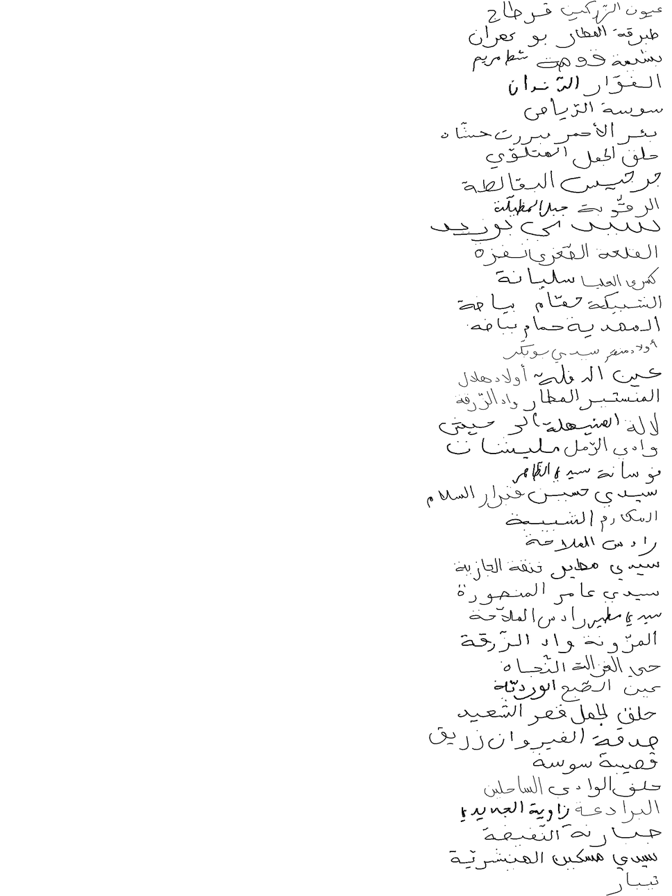 عيون التركين قرطاج
طبرقة العطار بو عمران
بشيمة قوهة شط مريم
الفوّار الزندان
سوسة الرياض
بئر الأحمر
حلق الجمل المتلوّي
جرجيس البقالطة
الرقّوبة جبل المطيلة
سيدي بوزيد
القلعة نفزة
كسرى العليا سليانة
الشبيكة حمّام بياضة
المهدية حمام بياضة
أولاد منصر سيدي بوبكر
عين الدفلة أولاد هلال
المنستير العطار واد الزرقة
لالة المنيهلة
وادي الرمل مليشات
فوسانة سيدي الظاهر
سيدي حسين منزل السلام
المكارم الشبيبة
رادس الملاحة
سيدي مطير فنقة الجازية
سيدي عامر المنصورة
سيدي مطير رادس الملاحة
المزّونة واد الزّرقة
حي الغزالة النّجاه
عين الضبع الوردية
حلق الجمل قصر السّعيد
صدقة القيروان زريق
قصيبة سوسة
حلق الوادي الساحلين
البرادعة زاوية الجديدي
جبارنة النفيضة
سيدي مسكين الهنشرية
تيبار